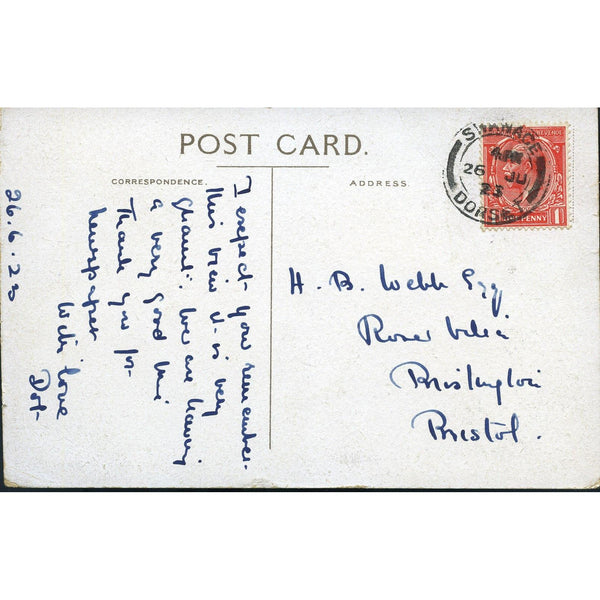 POST CARD.
CORRESPONDENCE.
ADDRESS.
SWANAGE
26 JU
23
DORSET
PENNY
I expect you remember
this view it is very
We are having
a very good time
Thank you for
newspaper
With love
Dot
26.6.23
H. B. Webb Esq
Rose Villa
Brislington
Bristol.